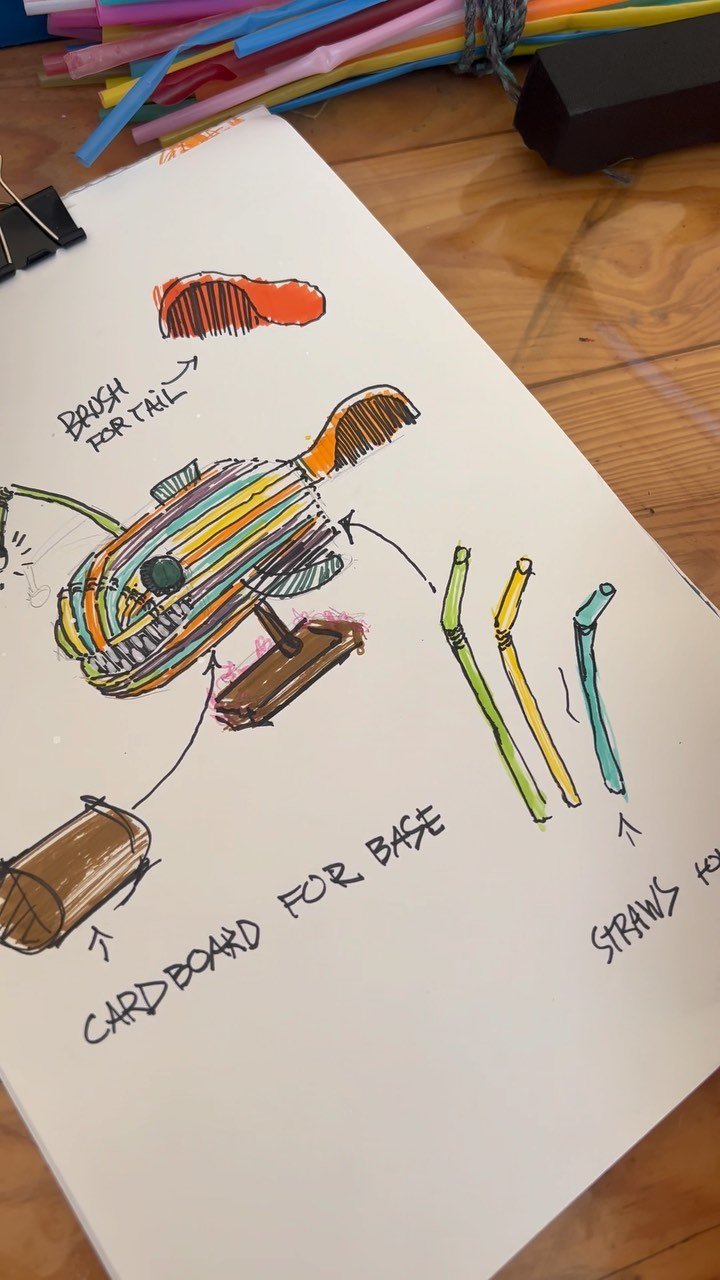 BRUSH
FOR TAIL
CARDBOARD FOR BASE
STRAWS